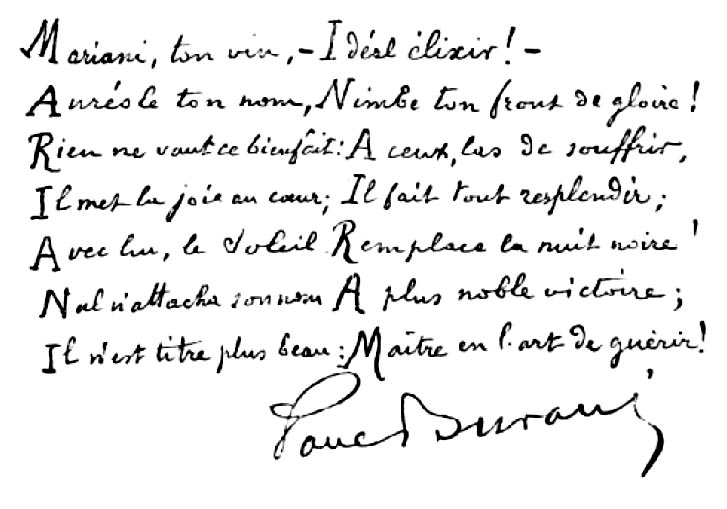 Mariani, ton vin, – Idéal élixir! –
Auréole ton nom, Nimbe ton front de gloire!
Rien ne vaut ce bienfait: A ceux, las de souffrir,
Il met la joie au cœur; Il fait tout resplendir;
Avec lui, le Soleil Remplace la nuit noire!
Nul n'attacha son nom A plus noble victoire;
Il n'est titre plus beau: Maître en l'art de guérir!
Paul